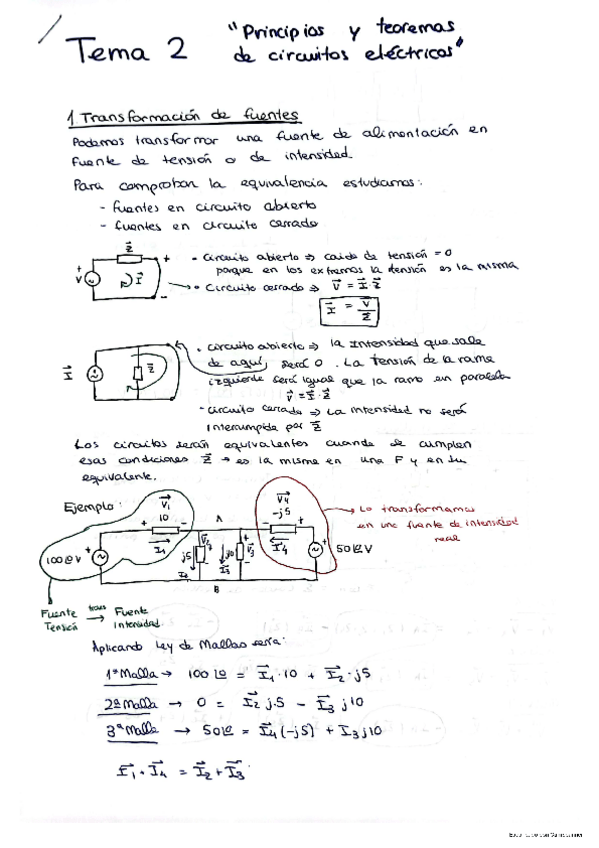 Tema 2
"Principios y teoremas
de circuitos eléctricos"
1 Transformación de fuentes
Podemos transformar una fuente de alimentación en
fuente de tensión o de intensidad.
Para comprobar la equivalencia estudiamos:
- fuentes en circuito abierto
- fuentes en circuito cerrado
Z
+
V
I
+
-
- circuito abierto ⇒ caída de tensión = 0
porque en los extremos la tensión es la misma
• Circuito cerrado ⇒ V = I · Z
I = V/Z
I
Z
• circuito abierto ⇒ la intensidad que sale
de aquí, será 0. La tensión de la rama
izquierda será igual que la rama en paralelo
V = I · Z
- circuito cerrado ⇒ La intensidad no será
interrumpida por Z
Los circuitos serán equivalentes cuando se cumplen
esas condiciones Z → es la misma en una F y en su
equivalente.
Ejemplo:
V1
10
+ -
I1
A
100∠0 V
+
j5
V2
I2
j10
V3
I3
B
V4
-j5
- +
I4
+
50∠0 V
→ Lo transformamos
en una fuente de intensidad
real
Fuente Tensión
trans →
Fuente Intensidad
Aplicando Ley de Mallas sería:
1ª Malla → 100∠0 = I1 · 10 + I2 · j5
2ª Malla → 0 = I2 j5 - I3 j10
3ª Malla → 50∠0 = I4(-j5) + I3 j10
I1 + I4 = I2 + I3